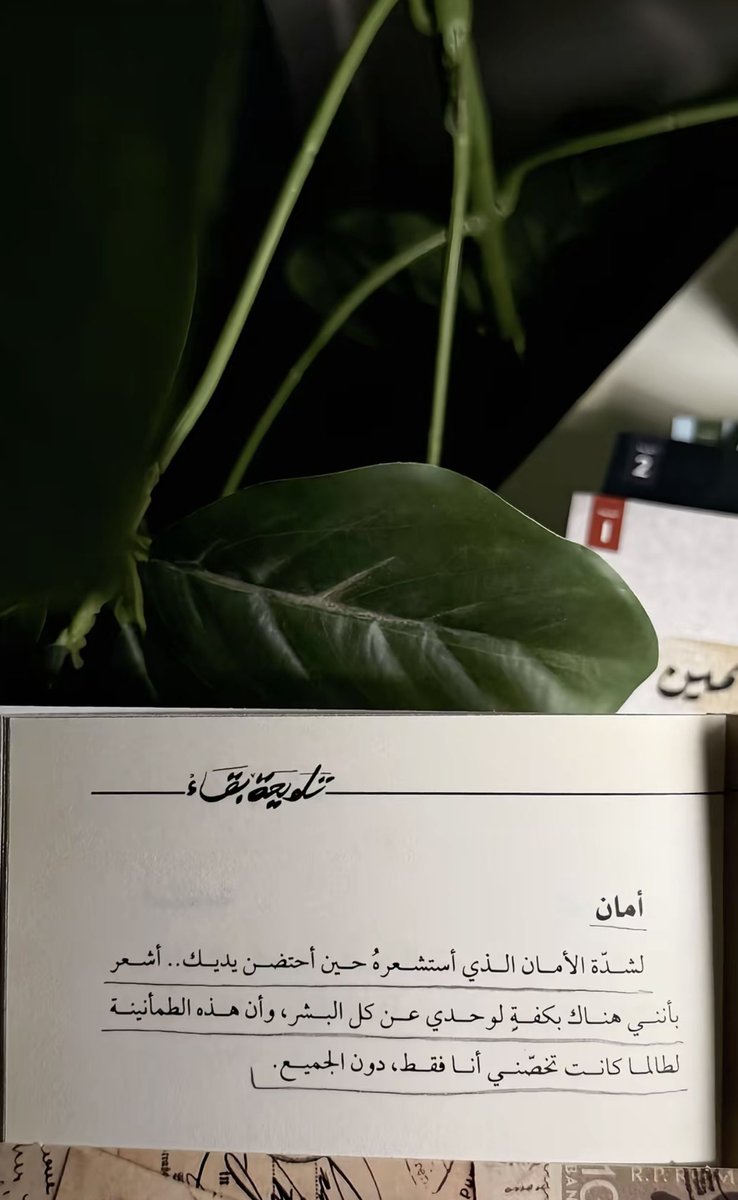 2
1
تلويحة بقاء
أمان
لشدّة الأمان الذي أستشعرهُ حين أحتضن يديك.. أشعر
بأنني هناك بكفةٍ لوحدي عن كل البشر، وأن هذه الطمأنينة
لطالما كانت تخصّني أنا فقط، دون الجميع.